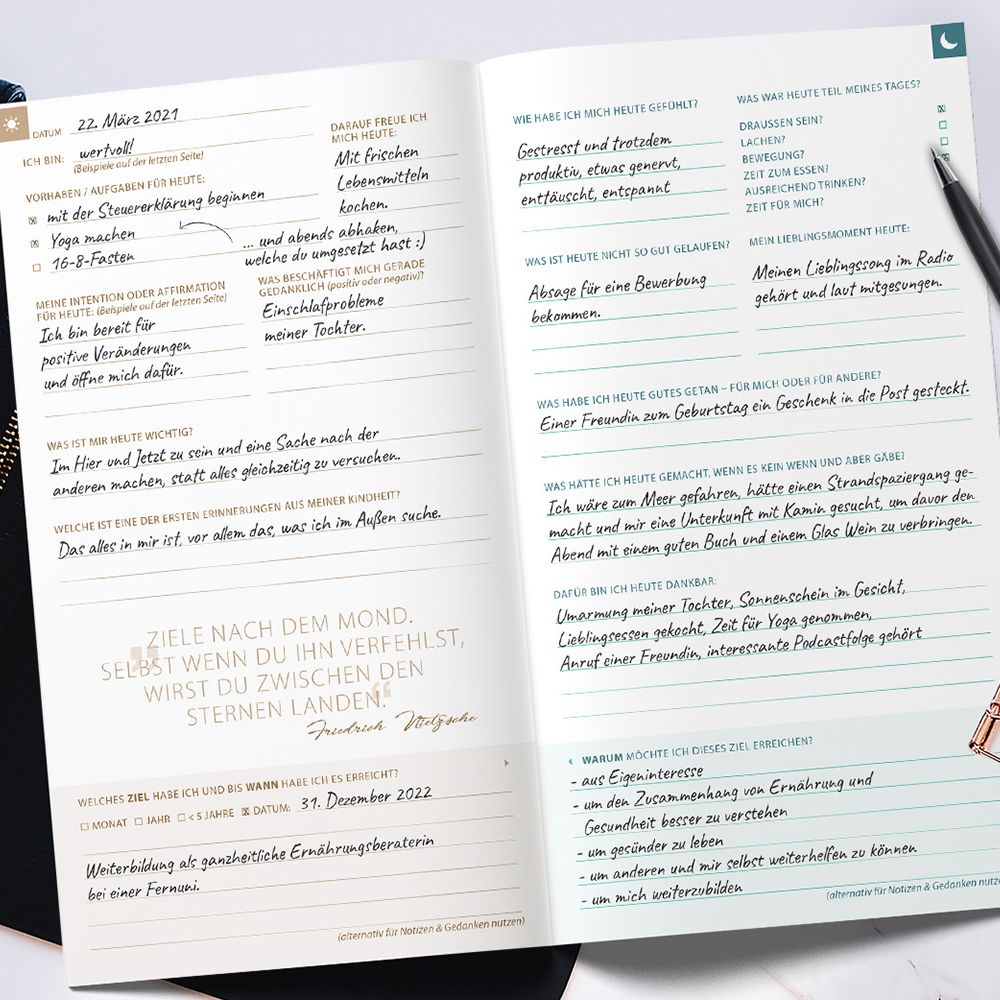 DATUM 22. März 2021
ICH BIN: wertvoll!
(Beispiele auf der letzten Seite)
VORHABEN / AUFGABEN FÜR HEUTE:
☒ mit der Steuererklärung beginnen
☒ Yoga machen
☐ 16-8-Fasten
... und abends abhaken,
welche du umgesetzt hast :)
DARAUF FREUE ICH
MICH HEUTE:
Mit frischen
Lebensmitteln
kochen.
MEINE INTENTION ODER AFFIRMATION
FÜR HEUTE: (Beispiele auf der letzten Seite)
Ich bin bereit für
positive Veränderungen
und öffne mich dafür.
WAS BESCHÄFTIGT MICH GERADE
GEDANKLICH (positiv oder negativ)?
Einschlafprobleme
meiner Tochter.
WAS IST MIR HEUTE WICHTIG?
Im Hier und Jetzt zu sein und eine Sache nach der
anderen machen, statt alles gleichzeitig zu versuchen.
WELCHE IST EINE DER ERSTEN ERINNERUNGEN AUS MEINER KINDHEIT?
Das alles in mir ist, vor allem das, was ich im Außen suche.
„ZIELE NACH DEM MOND.
SELBST WENN DU IHN VERFEHLST,
WIRST DU ZWISCHEN DEN
STERNEN LANDEN.“
Friedrich Nietzsche
WELCHES ZIEL HABE ICH UND BIS WANN HABE ICH ES ERREICHT?
☐ MONAT ☐ JAHR ☐ < 5 JAHRE ☒ DATUM: 31. Dezember 2022
Weiterbildung als ganzheitliche Ernährungsberaterin
bei einer Fernuni.
(alternativ für Notizen & Gedanken nutzen)
WIE HABE ICH MICH HEUTE GEFÜHLT?
Gestresst und trotzdem
produktiv, etwas genervt,
enttäuscht, entspannt
WAS WAR HEUTE TEIL MEINES TAGES?
DRAUSSEN SEIN?
LACHEN?
BEWEGUNG?
ZEIT ZUM ESSEN?
AUSREICHEND TRINKEN?
ZEIT FÜR MICH?
WAS IST HEUTE NICHT SO GUT GELAUFEN?
Absage für eine Bewerbung
bekommen.
MEIN LIEBLINGSMOMENT HEUTE:
Meinen Lieblingssong im Radio
gehört und laut mitgesungen.
WAS HABE ICH HEUTE GUTES GETAN – FÜR MICH ODER FÜR ANDERE?
Einer Freundin zum Geburtstag ein Geschenk in die Post gesteckt.
WAS HÄTTE ICH HEUTE GEMACHT, WENN ES KEIN WENN UND ABER GÄBE?
Ich wäre zum Meer gefahren, hätte einen Strandspaziergang ge-
macht und mir eine Unterkunft mit Kamin gesucht, um davor den
Abend mit einem guten Buch und einem Glas Wein zu verbringen.
DAFÜR BIN ICH HEUTE DANKBAR:
Umarmung meiner Tochter, Sonnenschein im Gesicht,
Lieblingsessen gekocht, Zeit für Yoga genommen,
Anruf einer Freundin, interessante Podcastfolge gehört
WARUM MÖCHTE ICH DIESES ZIEL ERREICHEN?
- aus Eigeninteresse
- um den Zusammenhang von Ernährung und
Gesundheit besser zu verstehen
- um gesünder zu leben
- um anderen und mir selbst weiterhelfen zu können
- um mich weiterzubilden
(alternativ für Notizen & Gedanken nutze